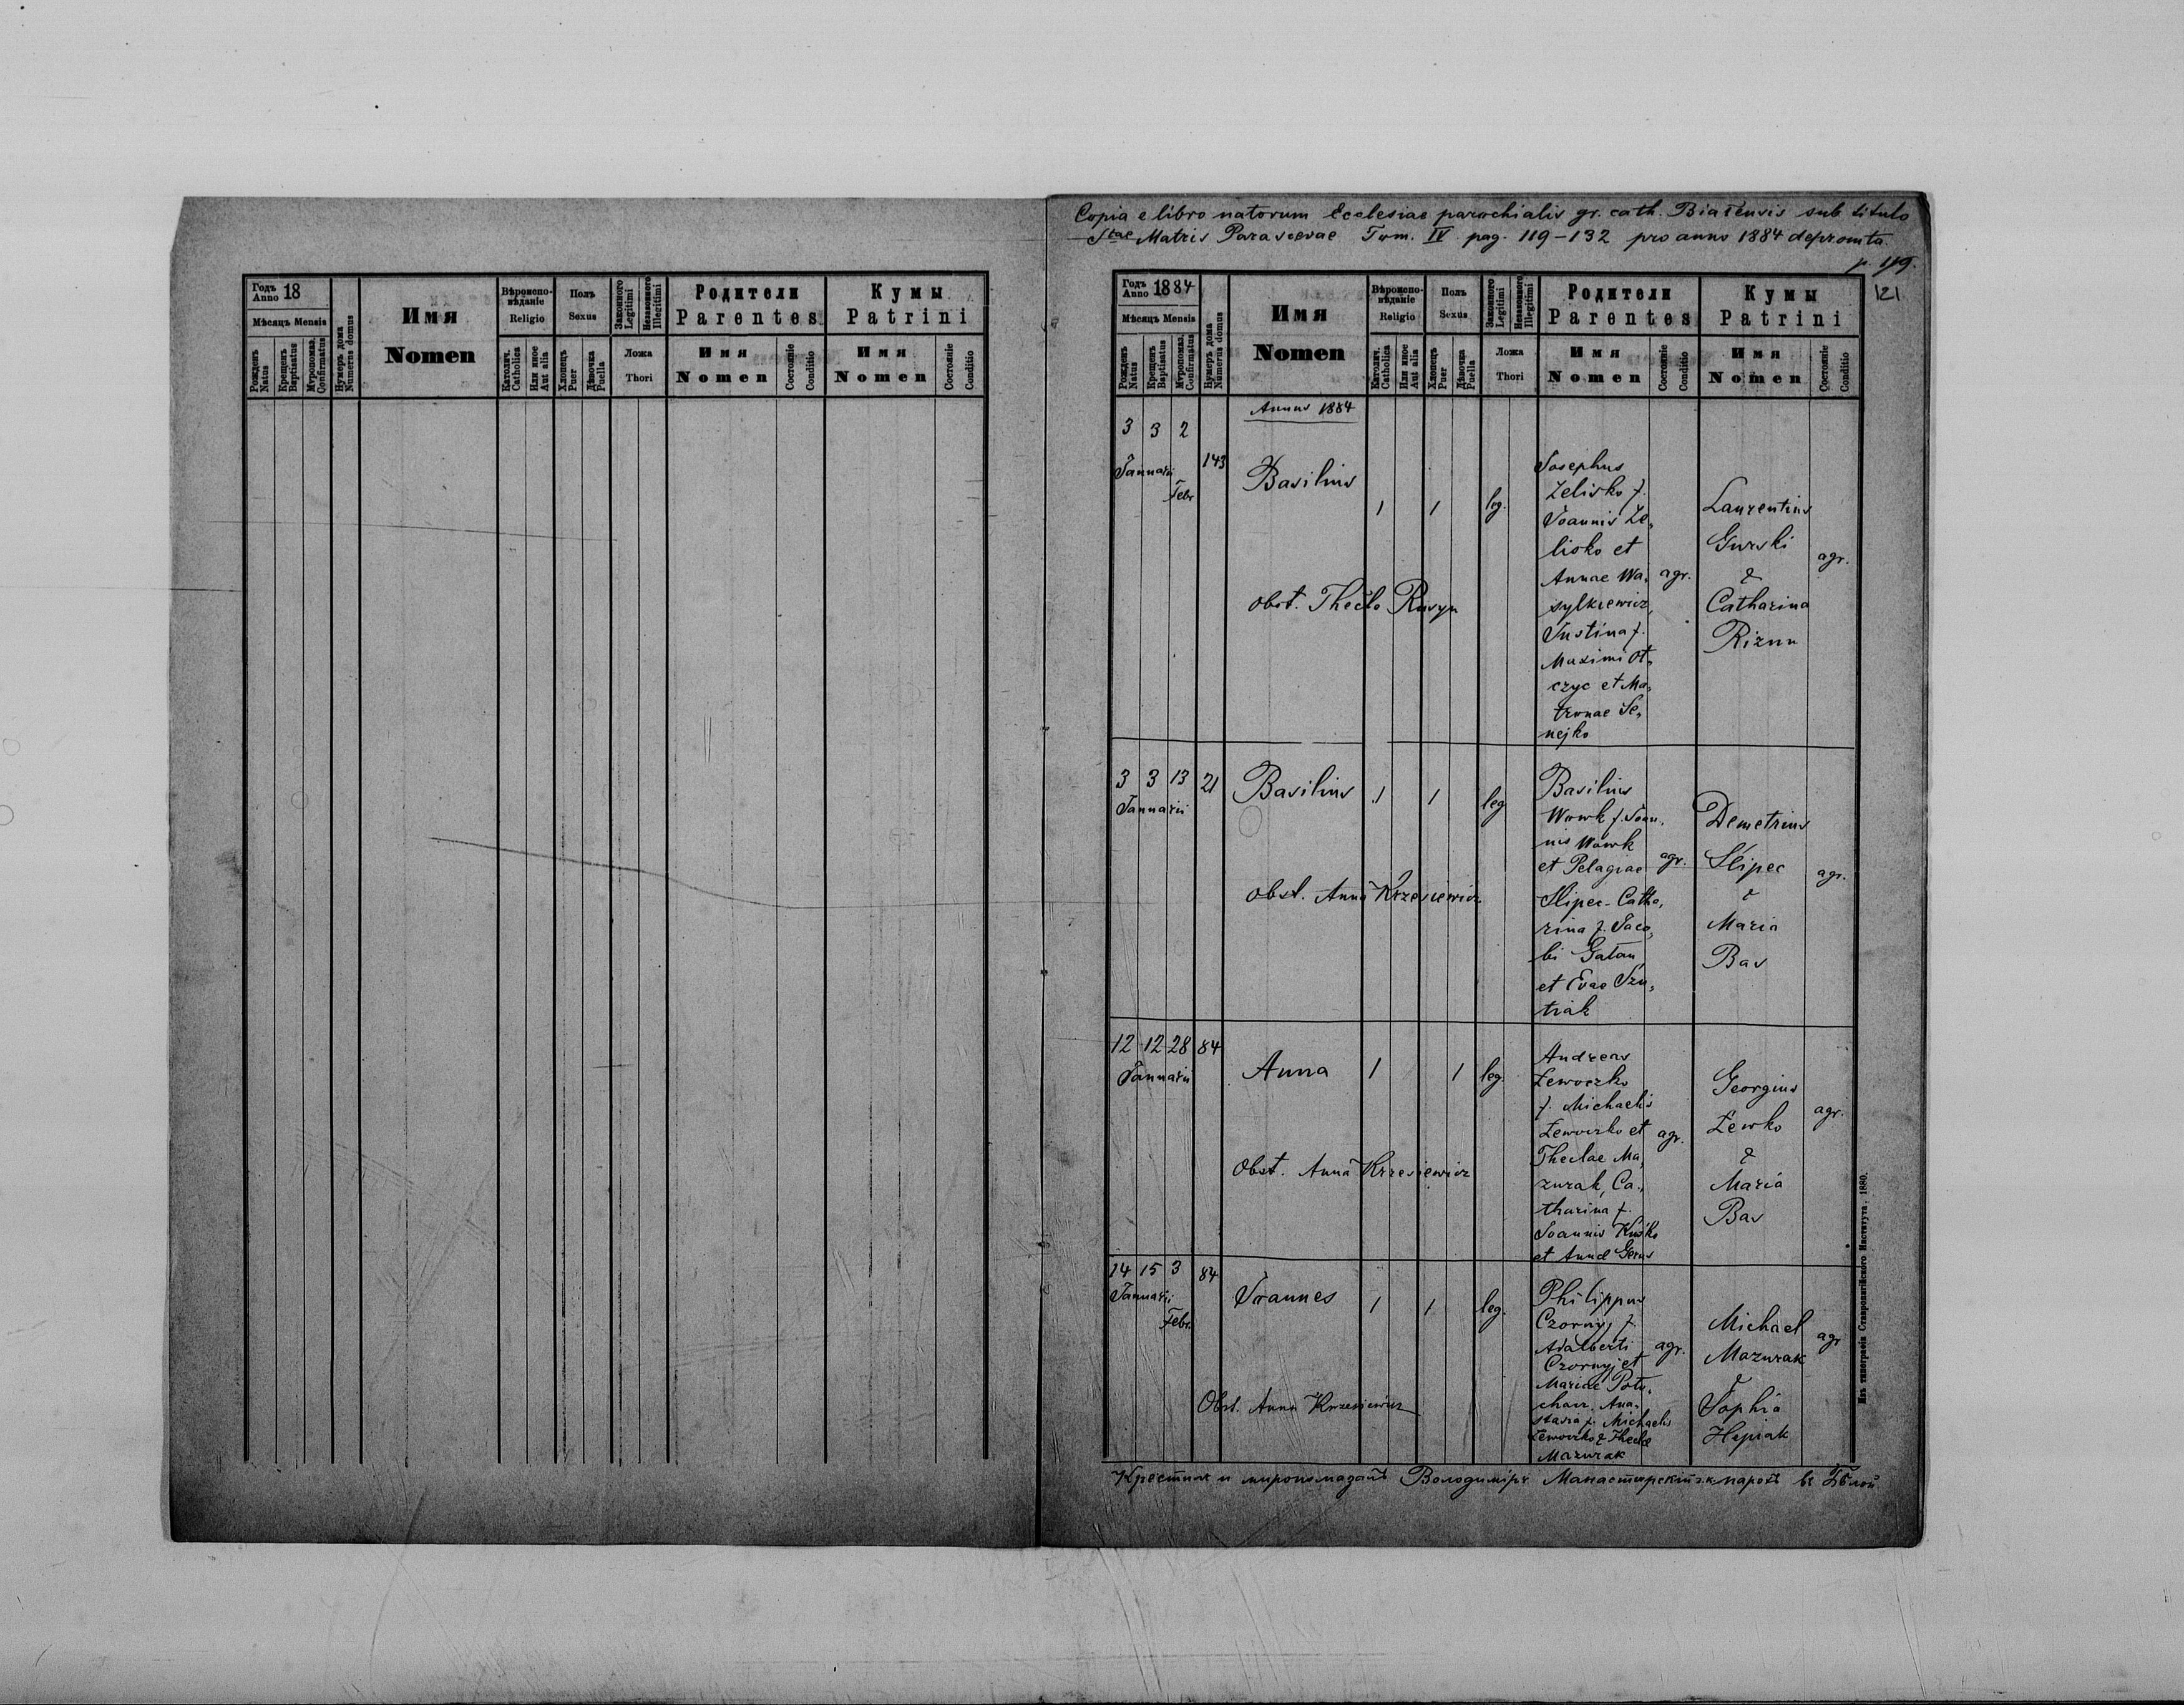 Copia e libro natorum Ecclesiae parochialis gr. cath. Białensis sub titulo
Stae Matris Parascevae Tom. IV pag. 119-132 pro anno 1884 depromta.
p. 119.
121
Годъ Anno 18
Мѣсяцъ Mensis
Рожденъ Natus
Крещенъ Baptisatus
Мѵропомаз. Confirmatus
Нумеръ дома Numerus domus
Имя
Nomen
Вѣроиспо-
вѣданіе
Religio
Католич. Catholica
Или иное Aut alia
Полъ
Sexus
Хлопецъ Puer
Дѣвочка Puella
Законного Legitimi
Незаконного Illegitimi
Ложа
Thori
Родители
Parentes
Имя
Nomen
Состояніе Conditio
Кумы
Patrini
Имя
Nomen
Состояніе Conditio
Годъ Anno 1884
Мѣсяцъ Mensis
Рожденъ Natus
Крещенъ Baptisatus
Мѵропомаз. Confirmatus
Нумеръ дома Numerus domus
Имя
Nomen
Вѣроиспо-
вѣданіе
Religio
Католич. Catholica
Или иное Aut alia
Полъ
Sexus
Хлопецъ Puer
Дѣвочка Puella
Законного Legitimi
Незаконного Illegitimi
Ложа
Thori
Родители
Parentes
Имя
Nomen
Состояніе Conditio
Кумы
Patrini
Имя
Nomen
Состояніе Conditio
Annus 1884
3 3 2
Januarii
Febr
143
Basilius
1
1
leg.
Josephus
Zelisko f.
Joannis Ze,
lisko et
Annae Wa,
sylkiewicz,
Justina f.
Maximi Ot,
czyc et Ma,
tronae Se,
nejko
agr.
Laurentius
Gurski
&
Catharina
Rizun
agr.
obst. Thecla Rusyn
3 3 13 21
Januarii
Basilius
1
1
leg
Basilius
Wowk f. Joan,
nis Wowk
et Pelagiae
Slipec Catha,
rina f. Jaco,
bi Gałan
et Evae Szu,
triak
agr.
Demetrius
Slipec
&
Maria
Bas
agr.
obst. Anna Krzesiewicz
12 12 28 84
Januarii
Anna
1
1
leg.
Andreas
Lewoczko
f. Michaelis
Lewoczko et
Theclae Ma,
zurak, Ca,
tharina f.
Joannis Kuśko
et Annae Gerus
agr.
Georgius
Lewko
&
Maria
Bas
agr.
Obst. Anna Krzesiewicz
14 15 3 84
Januarii
Febr.
Joannes
1
1
leg.
Philippus
Czornyj f.
Adalberti
Czornyj et
Mariae Potu,
charz. Ana,
stasia f. Michaelis
Lewoczko & Theclae
Mazurak
agr.
Michael
Mazurak
&
Sophia
Hepiak
agr
Obst. Anna Krzesiewicz
Изъ типографіи Ставропигійского Института. 1880.
Крестилъ и миропомазалъ Володимиръ Манастирскій г.к. парохъ въ Бѣлой